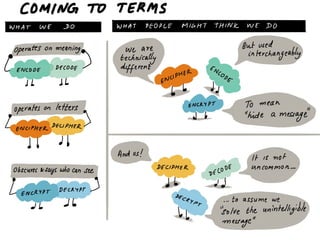 COMING TO TERMS
WHAT WE DO
Operates on meaning
ENCODE DECODE
Operates on letters
ENCIPHER DECIPHER
Obscures ways who can see
ENCRYPT DECRYPT
WHAT PEOPLE MIGHT THINK WE DO
We are
technically
different
But used
interchangeably
ENCIPHER
ENCODE
ENCRYPT
To mean
"hide a message"
And us!
DECIPHER
DECODE
DECRYPT
It is not
uncommon...
... to assume we
"solve the unintelligible
message"